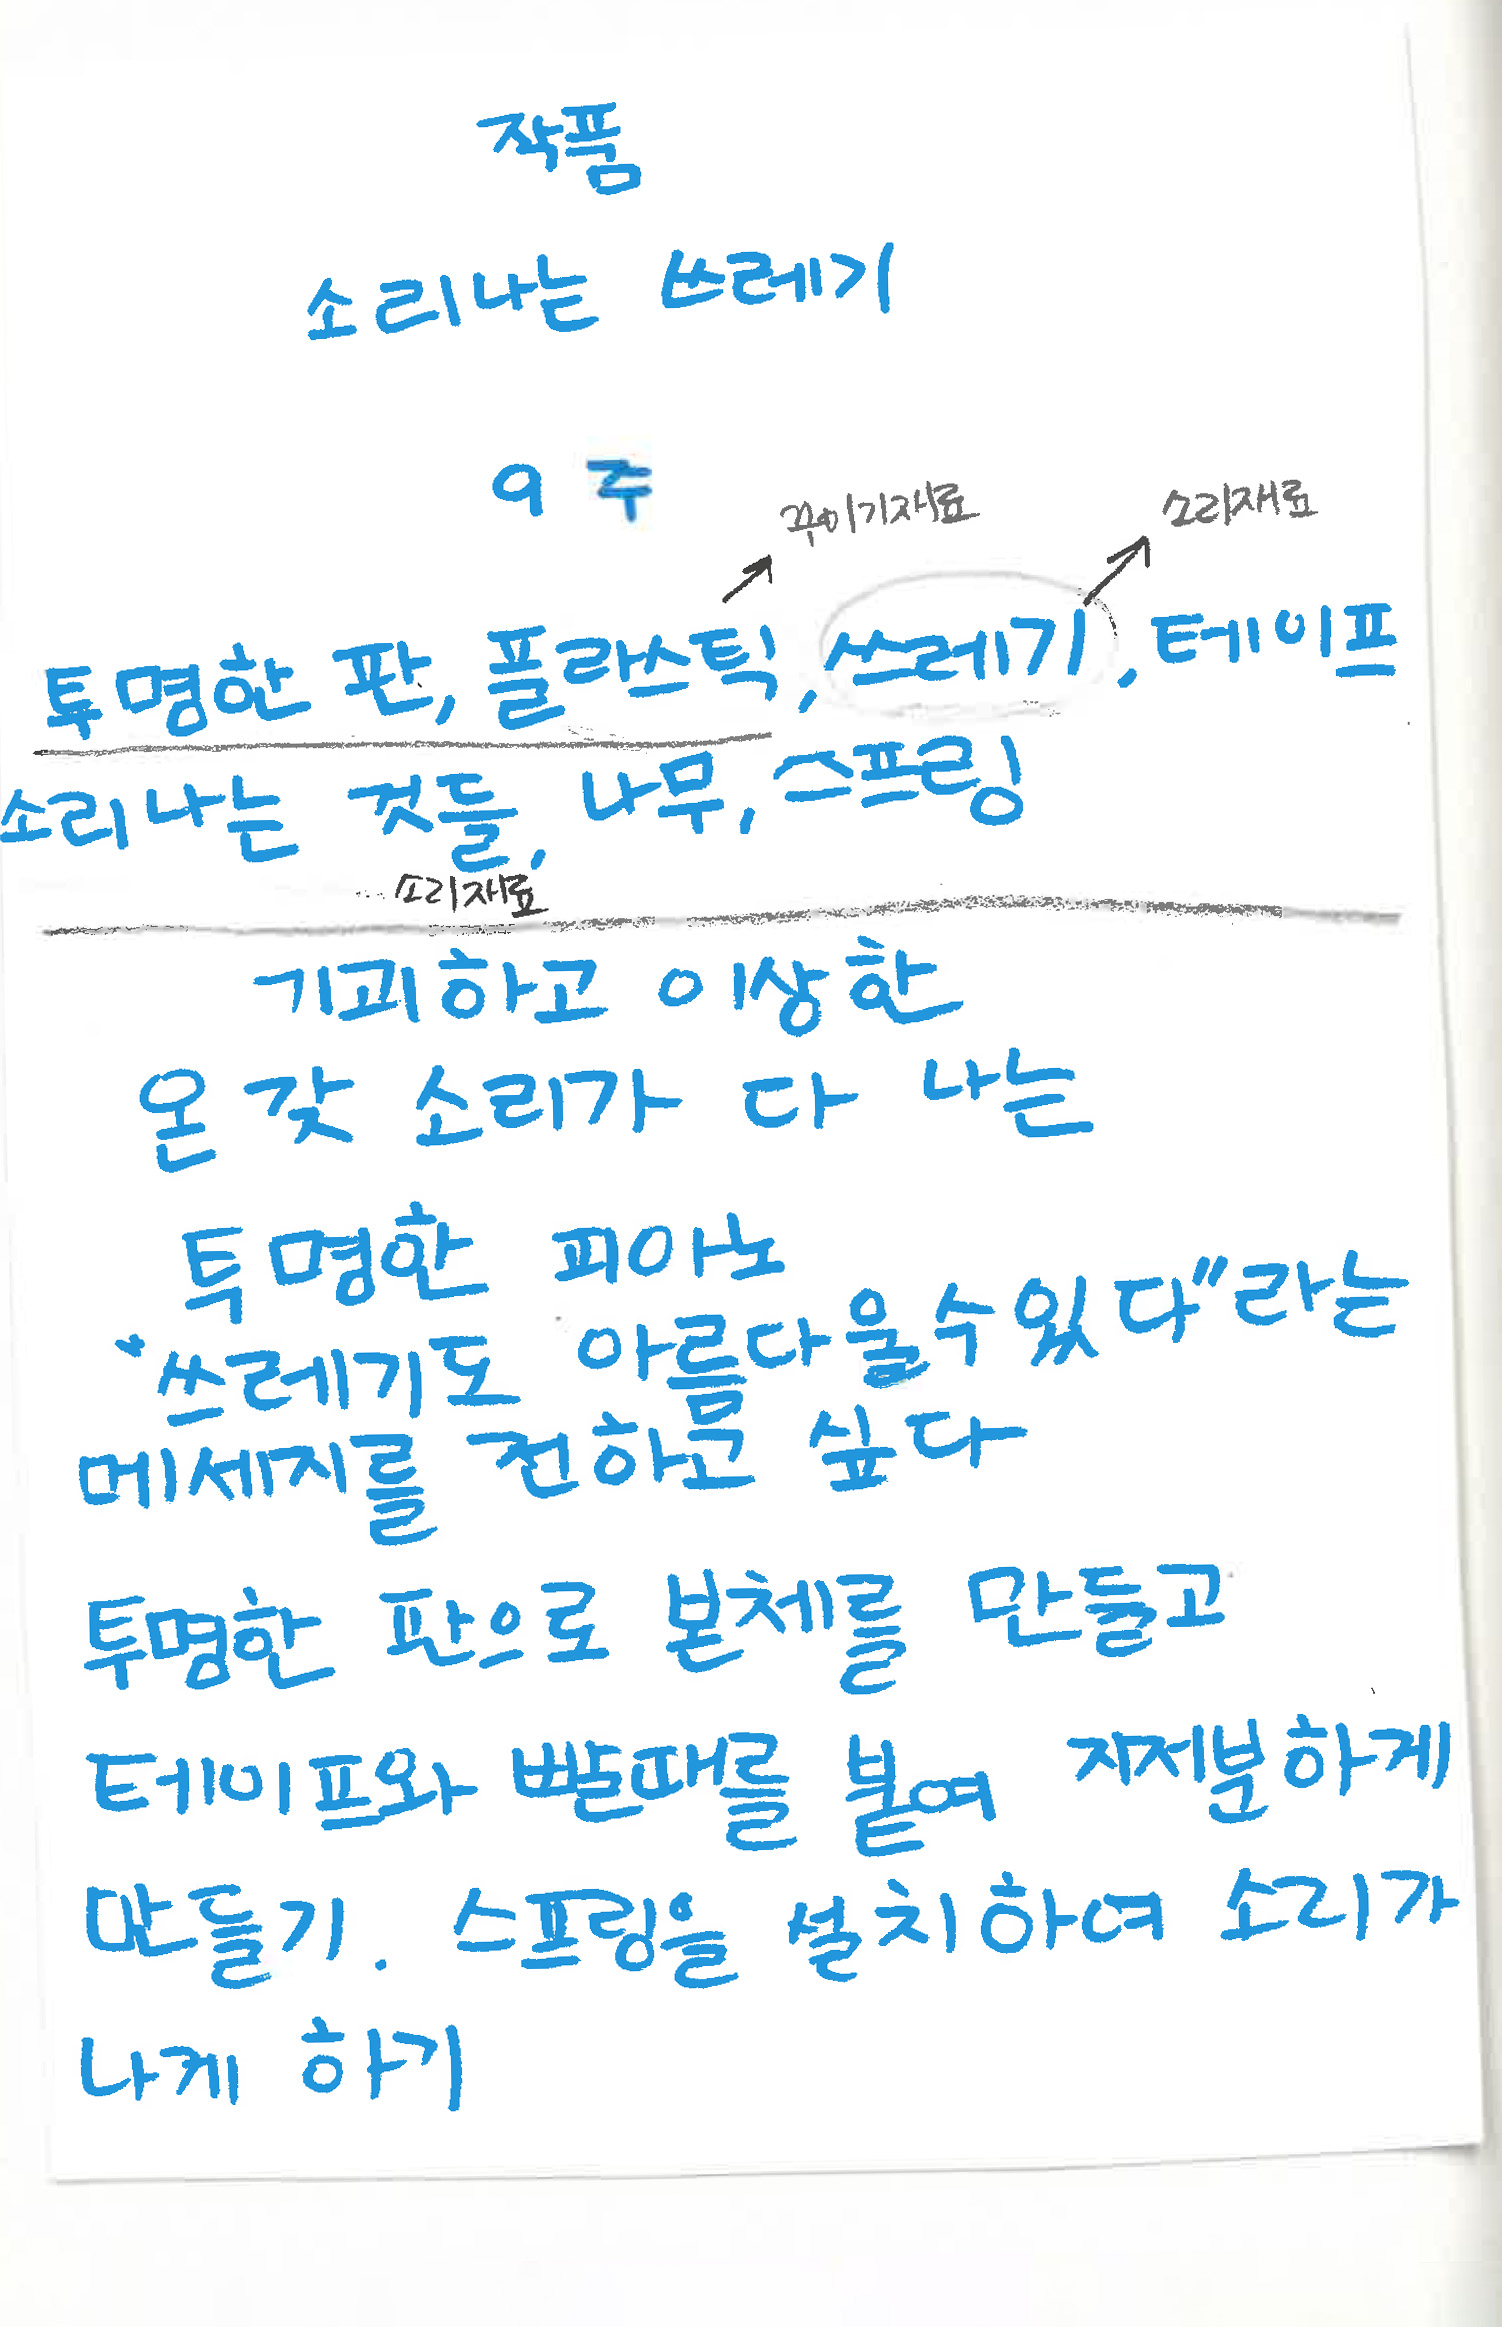 작품
소리나는 쓰레기
9주
꾸미기재료 소리재료
투명한 판, 플라스틱, 쓰레기, 테이프
소리나는 것들, 나무, 스프링
소리재료
기괴하고 이상한
온갖 소리가 다 나는
투명한 피아노
"쓰레기도 아름다울수있다"라는
메세지를 전하고 싶다
투명한 판으로 본체를 만들고
테이프와 빨때를 붙여 지저분하게
만들기. 스프링을 설치하여 소리가
나게 하기